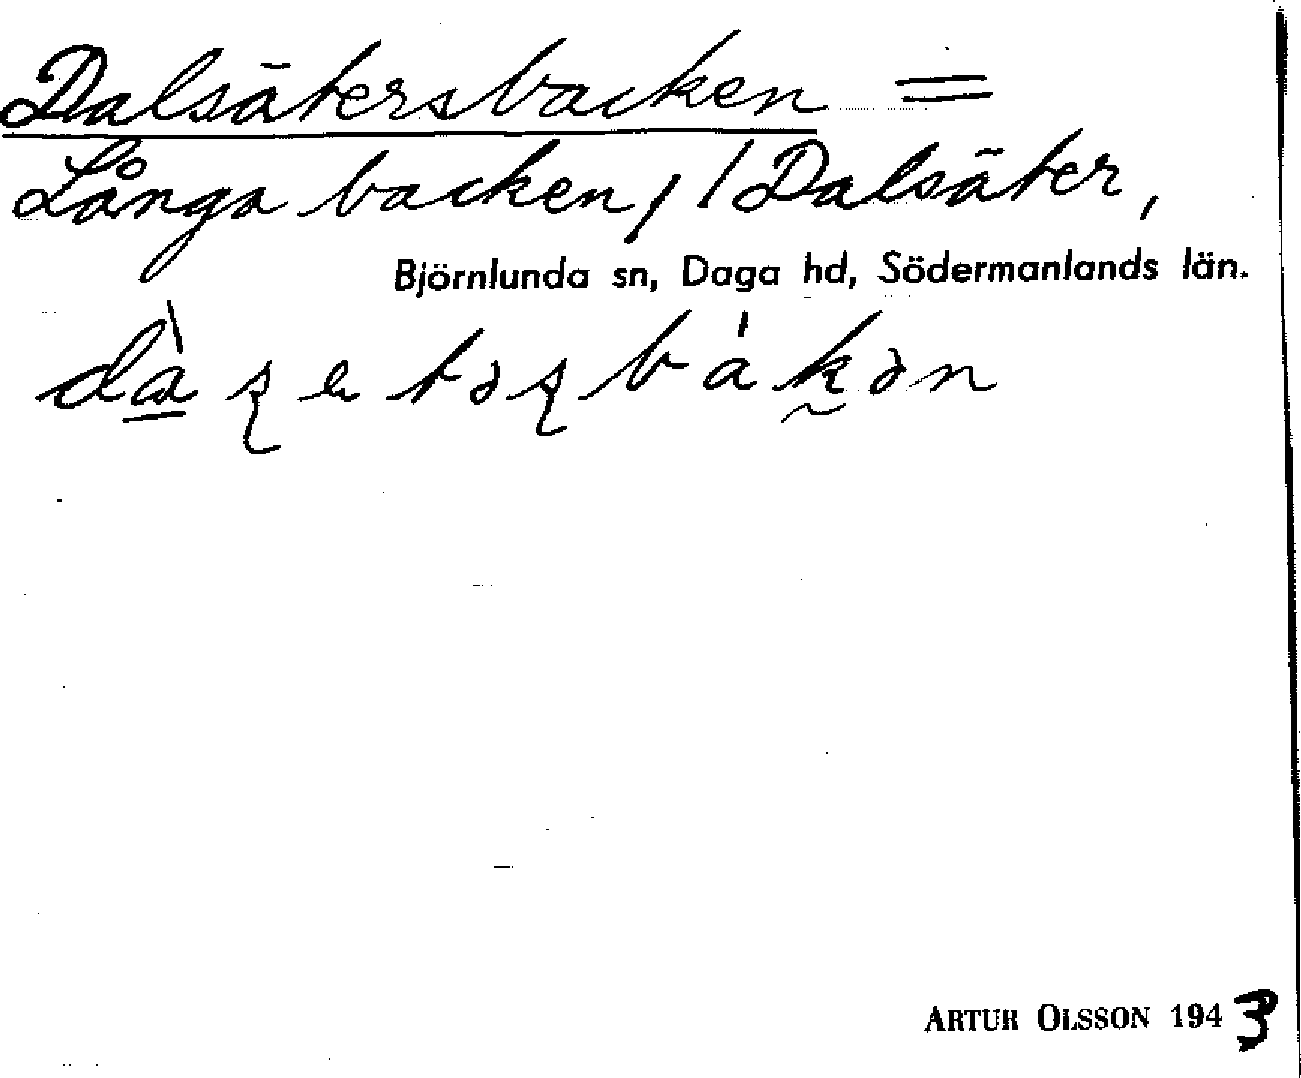 Dalsätersbacken =
Långa backen, / Dalsäter,
Björnlunda sn, Daga hd, Södermanlands län.
ARTUR OLSSON 1943